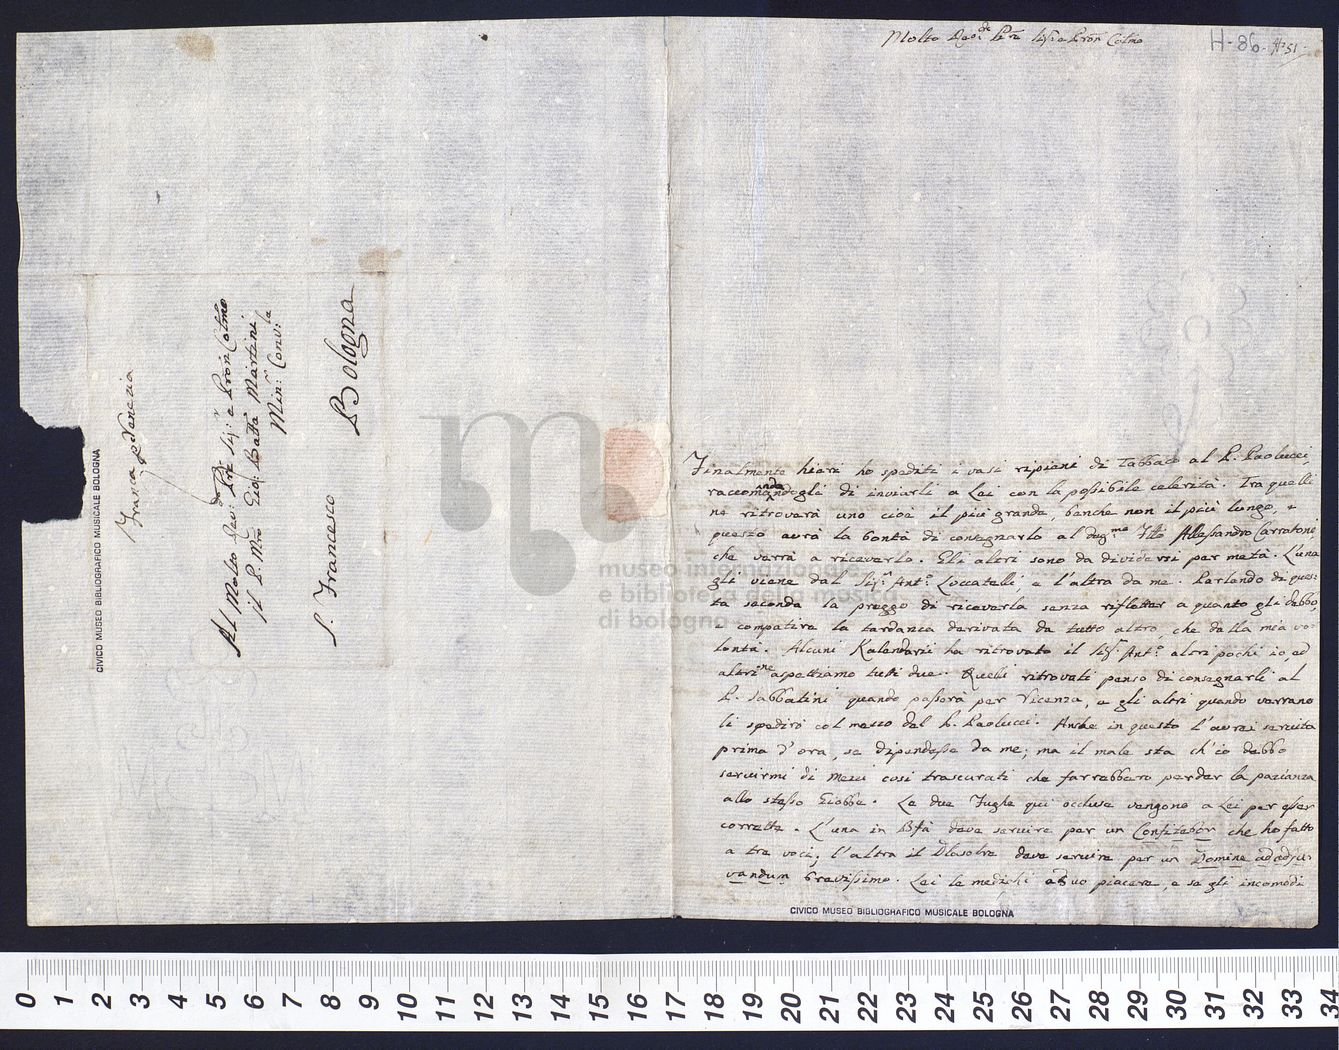 Franca p Venezia
Al Molto Revdo Pre Sigr e Pron Colmo
il P. Mro Gio: Batta Martini
Minr Conv:le
S. Francesco
Bologna
CIVICO MUSEO BIBLIOGRAFICO MUSICALE BOLOGNA
Molto Revdo Pre Sigr e Pron Colmo
H-86-
51
Finalmente hieri ho spediti i vasi ripieni di Tabbaco al P. Paolucci,
raccomandandogli di inviarli a Lei con la possibile celerità. Tra quelli
ne ritroverà uno cioè il più grande, benche non il più lungo, e
questo avrà la bontà di consegnarlo al Sigr Alessandro Carratoni
che verrà a riceverlo. Gli altri sono da dividersi per metà. L'una
gli viene dal Sigr Anto Loccatelli, e l'altra da me. Parlando di ques:
ta seconda la preggo di riceverla senza rifletter a quanto gli debbo
e compatire la tardanza derivata da tutto altro, che dalla mia vo:
lontà. Alcuni Kalendarii ha ritrovato il Sigr Anto altri pochi io, ed
altri ne aspettiamo tutti due. Quelli ritrovati penso di consegnarli al
P. Sabbatini quando passerà per Vicenza, e gli altri quando verrano
li spedirò col mezzo del P. Paolucci. Anche in questo l'avrei servita
prima d'ora, se dipendesse da me; ma il male sta ch'io debbo
servirmi di mezzi così trascurati che farrebbero perder la pazianza
allo stesso Giobbe. Le due Fughe qui occluse vengono a Lei per esser
corrette. L'una in Bfà deve servire per un Confitebor che ho fatto
a tre voci; l'altra il Dlasolre deve servire per un Domine ad adju:
vandum brevissimo. Lei le medichi a suo piacere, e se gli incomodi
CIVICO MUSEO BIBLIOGRAFICO MUSICALE BOLOGNA
museo internazionale
e biblioteca della musica
di bologna
0 1 2 3 4 5 6 7 8 9 10 11 12 13 14 15 16 17 18 19 20 21 22 23 24 25 26 27 28 29 30 31 32 33 34